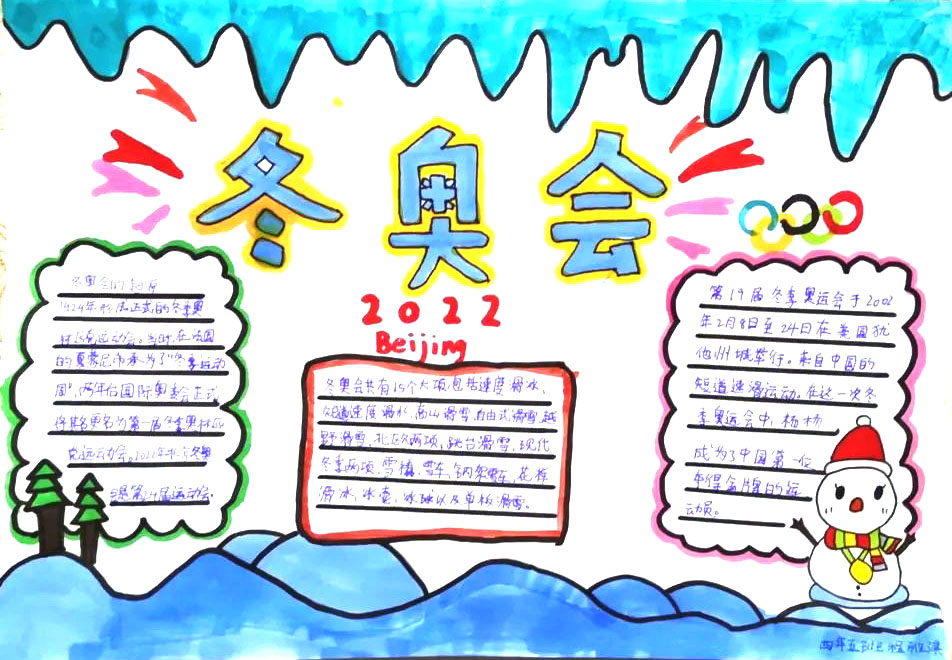 冬奥会
2022
Beijing
冬奥会的起源
1924年形成正式的冬季奥
林匹克运动会。当时,在法国
的夏蒙尼市承办了"冬季运动
周",两年后国际奥委会正式
将其更名为第一届冬季奥林匹
克运动会。2022年北京冬奥
是第24届运动会。
冬奥会共有15个大项包括速度滑冰、
短道速度滑冰、高山滑雪、自由式滑雪、越
野滑雪、北欧两项、跳台滑雪、现代
冬季两项、雪橇、雪车、钢架雪车、花样
滑冰、冰壶、冰球以及单板滑雪。
第19届冬季奥运会于2002
年2月8日至24日在美国犹
他州城举行。来自中国的
短道速滑运动。在这一次冬
季奥运会中,杨杨
成为了中国第一位
夺得金牌的运
动员。
四年五班